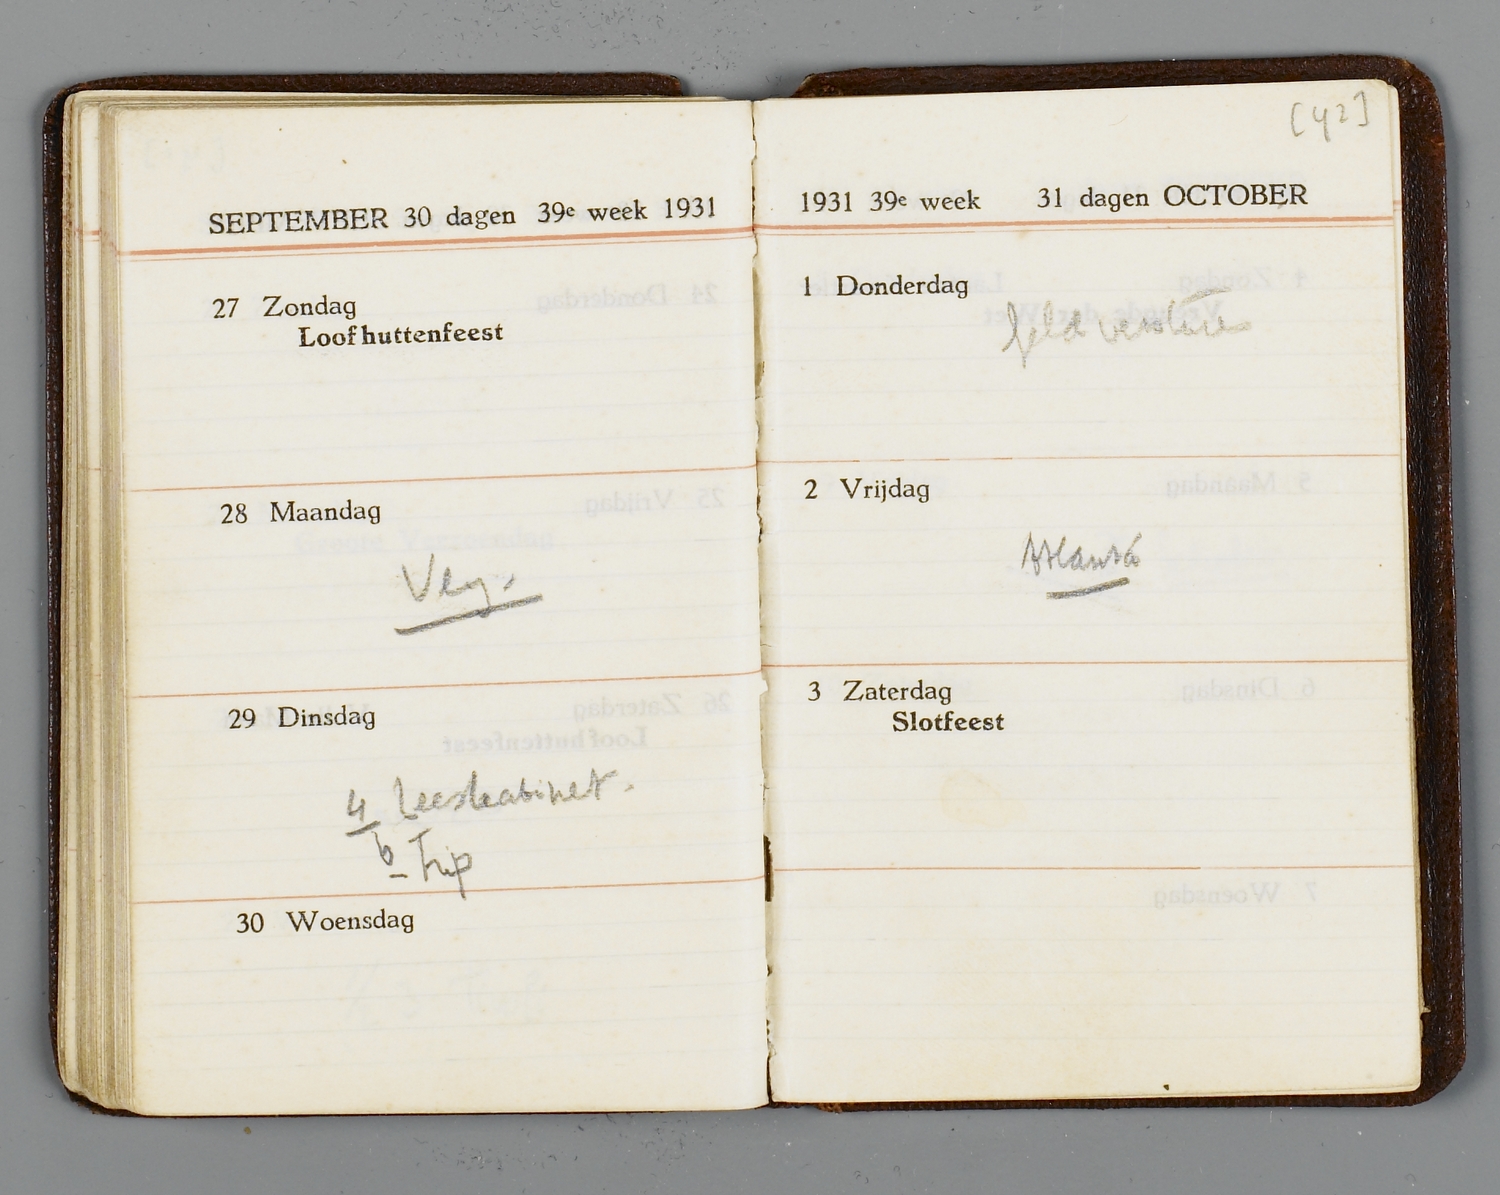 SEPTEMBER 30 dagen 39e week 1931
27 Zondag
Loofhuttenfeest
28 Maandag
Verg.
29 Dinsdag
4 Leeskabinet.
Trip
30 Woensdag
[42]
1931 39e week 31 dagen OCTOBER
1 Donderdag
Geld
2 Vrijdag
Atlanta
3 Zaterdag
Slotfeest